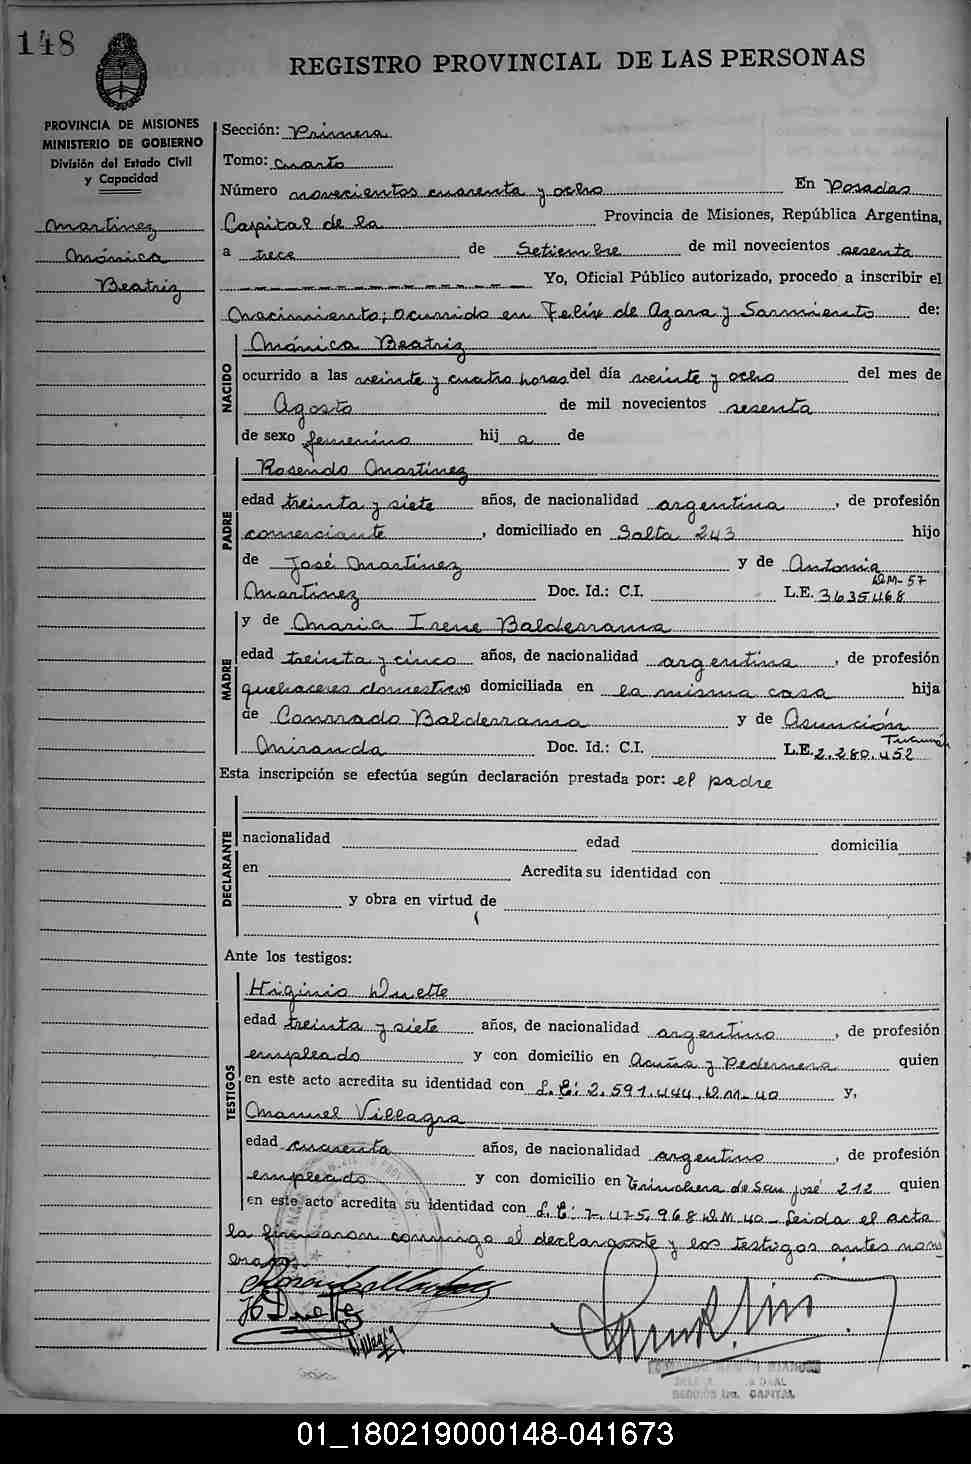 148
REGISTRO PROVINCIAL DE LAS PERSONAS
PROVINCIA DE MISIONES
MINISTERIO DE GOBIERNO
División del Estado Civil
y Capacidad
Martinez
Mónica
Beatriz
Sección: Primera
Tomo: Cuarto
Número novecientos cuarenta y ocho En Posadas
Capital de la Provincia de Misiones, República Argentina,
a trece de Setiembre de mil novecientos sesenta
Yo, Oficial Público autorizado, procedo a inscribir el
Nacimiento; ocurrido en Felix de Azara y Sarmiento de:
NACIDO
Mónica Beatriz
ocurrido a las veinte y cuatro horas del día veinte y ocho del mes de
Agosto de mil novecientos sesenta
de sexo femenino hij a de
PADRE
Rosendo Martinez
edad treinta y siete años, de nacionalidad argentina, de profesión
comerciante, domiciliado en Salta 243 hijo
de José Martinez y de Antonia
Martinez Doc. Id.: C.I. L.E. 3635468 DM-57
MADRE
y de Maria Irene Balderrama
edad treinta y cinco años, de nacionalidad argentina, de profesión
quehaceres domesticos domiciliada en la misma casa hija
de Conrrado Balderrama y de Asunción
Miranda Doc. Id.: C.I. L.E. 2.280.452 Tucumán
Esta inscripción se efectúa según declaración prestada por: el padre
DECLARANTE
nacionalidad edad domicilia
en Acredita su identidad con
y obra en virtud de
Ante los testigos:
TESTIGOS
Higinio Duette
edad treinta y siete años, de nacionalidad argentino, de profesión
empleado y con domicilio en Acuña y Pedernera quien
en este acto acredita su identidad con L.E: 2.591.444.DM-40 y,
Manuel Villagra
edad cuarenta años, de nacionalidad argentino, de profesión
empleado y con domicilio en Trinchera de San José 212 quien
en este acto acredita su identidad con L.E: 7.475.968 DM 40- Leida el acta
la firmaron conmigo el declarante y los testigos antes nom
H Duette
Villagra
SECCIÓN 1ra. CAPITAL
01_180219000148-041673